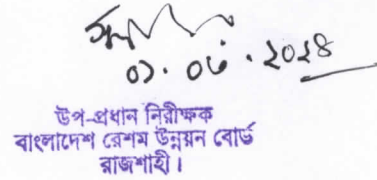 ০১.০৬.২০২৪
উপ-প্রধান নিরীক্ষক
বাংলাদেশ রেশম উন্নয়ন বোর্ড
রাজশাহী।